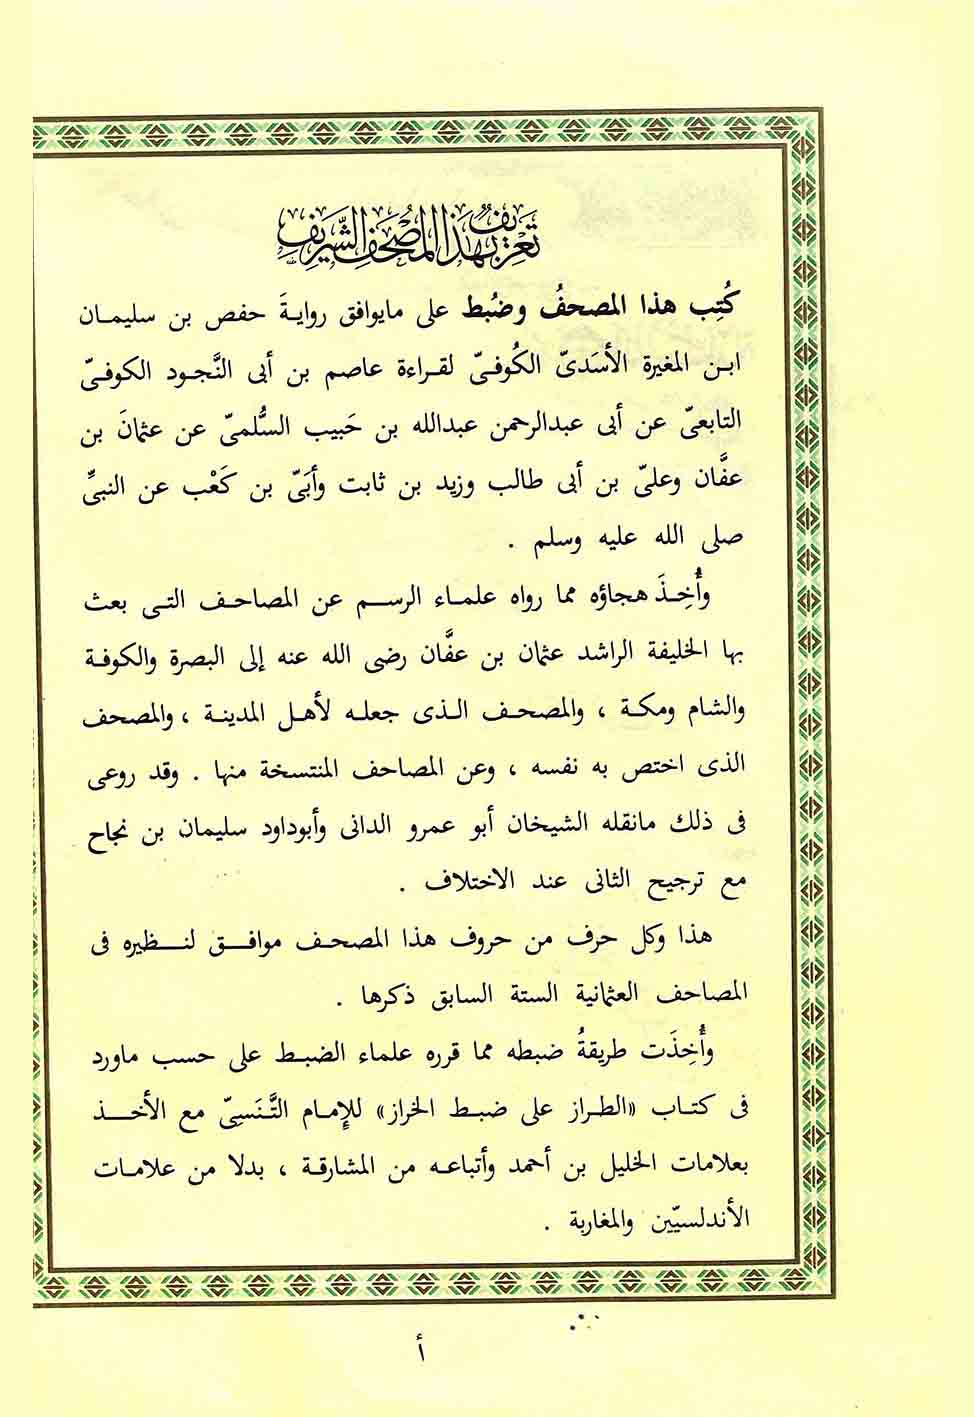 تَعْرِيفٌ بِهَذَا المُصْحَفِ الشَّرِيفِ
كُتِب هذا المصحفُ وضُبط على مايوافق روايةَ حفص بن سليمان
ابن المغيرة الأسَدىّ الكُوفىّ لقراءة عاصم بن أبى النَّجود الكوفىّ
التابعىّ عن أبى عبدالرحمن عبدالله بن حَبيب السُّلمىّ عن عثمانَ بن
عفَّان وعلىّ بن أبى طالب وزيد بن ثابت وأبَىّ بن كَعْب عن النبىِّ
صلى الله عليه وسلم .
وأُخِذَ هجاؤه مما رواه علماء الرسم عن المصاحف التى بعث
بها الخليفة الراشد عثمان بن عفَّان رضى الله عنه إلى البصرة والكوفة
والشام ومكة ، والمصحف الذى جعله لأهل المدينة ، والمصحف
الذى اختص به نفسه ، وعن المصاحف المنتسخة منها . وقد روعى
فى ذلك مانقله الشيخان أبو عمرو الدانى وأبوداود سليمان بن نجاح
مع ترجيح الثانى عند الاختلاف .
هذا وكل حرف من حروف هذا المصحف موافق لنظيره فى
المصاحف العثمانية الستة السابق ذكرها .
وأُخِذَت طريقةُ ضبطه مما قرره علماء الضبط على حسب ماورد
فى كتاب «الطراز على ضبط الخراز» للإمام التَّنَسىّ مع الأخذ
بعلامات الخليل بن أحمد وأتباعه من المشارقة ، بدلا من علامات
الأندلسيّين والمغاربة .
أ